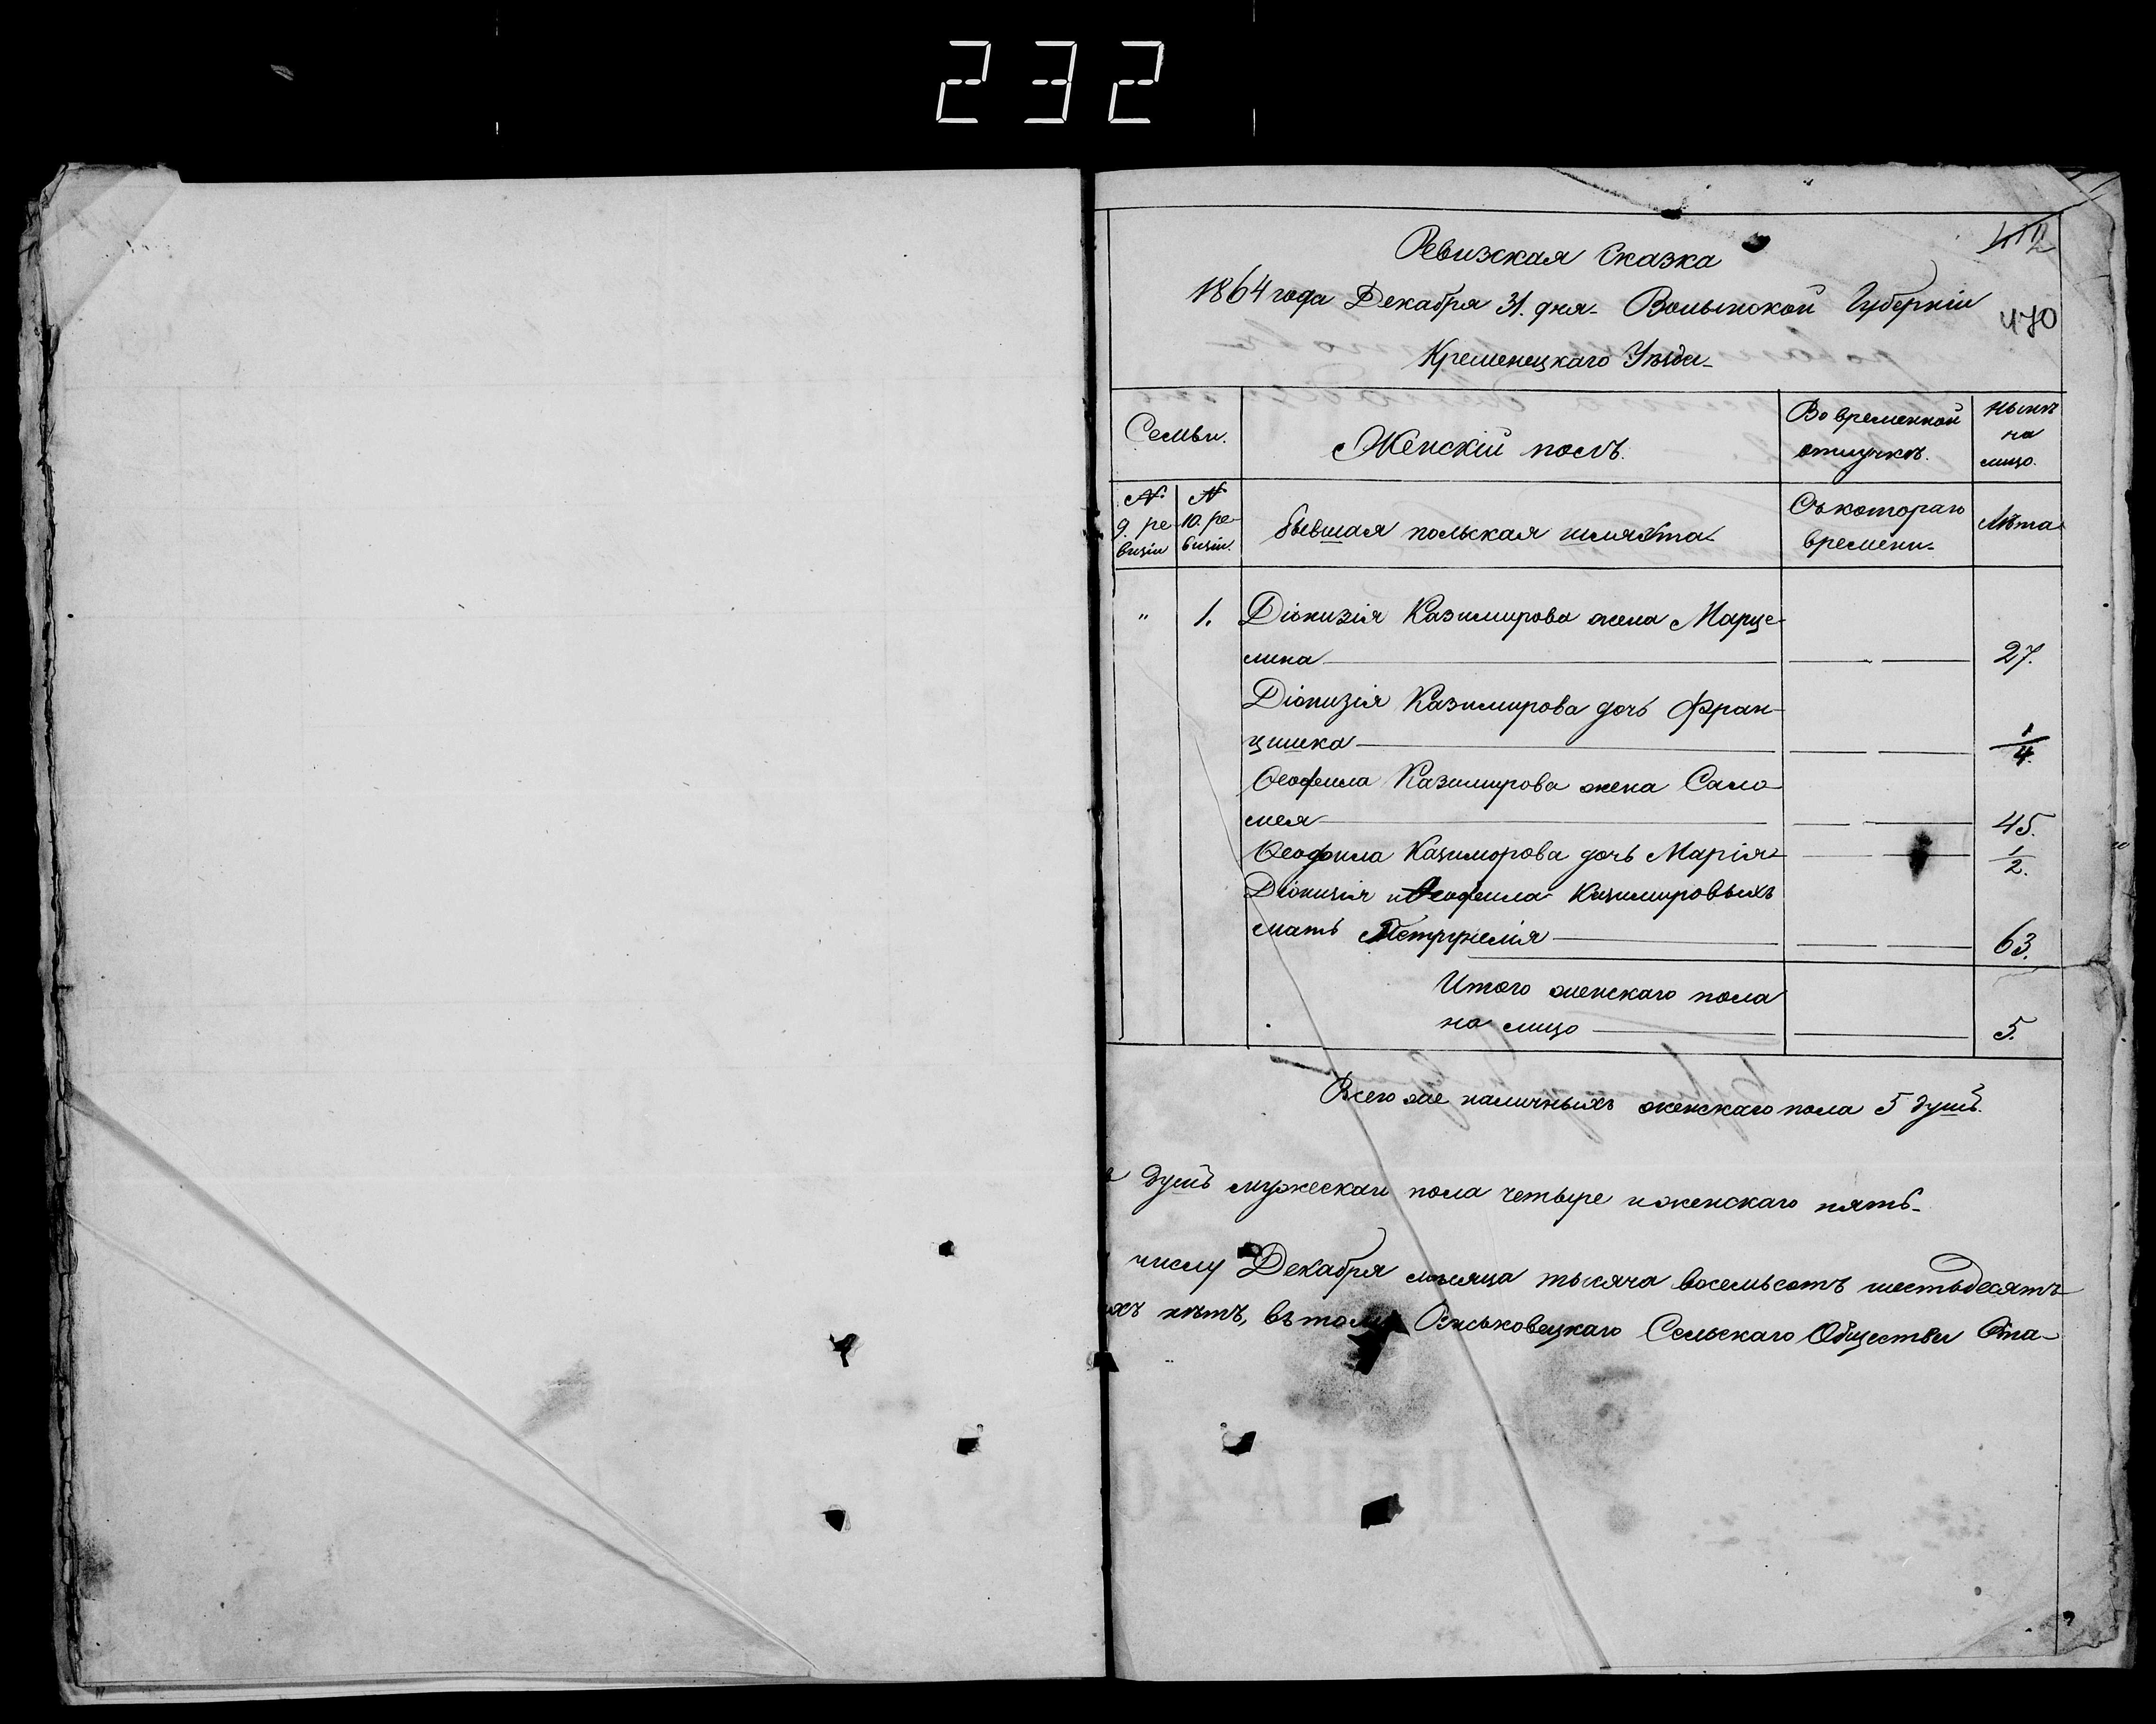 232
412
Ревизская Сказка
1864 года Декабря 31. дня- Волынской Губерніи
470
Кременецкаго Уѣзда-
Семьи.
Женскій полъ.
Во временной отлучкѣ.
нынѣ на лицо.
№ 9. ре-визіи
№ 10. ре-визіи.
бывшая польская шляхта.
Съ котораго времени-
Лѣта
" 1. Діонизія Казимирова жена Марце-
лина 27.
Діонизія Казимирова дочь Фран-
цишка 1/4.
Ѳеофила Казимирова жена Сало-
мея 45.
Ѳеофила Казимирова дочь Марія 1/2.
Діонизія и Ѳеофила Казимировыхъ
мать Петрунелія 63.
Итого женскаго пола
на лицо 5.
Всего же наличныхъ женскаго пола 5 душъ.
душъ мужескаго пола четыре и женскаго пять-
числу Декабря мѣсяца тысяча восемьсотъ шестьдесятъ
ихъ нѣтъ, въ томъ Сельскаго Общества Ста-